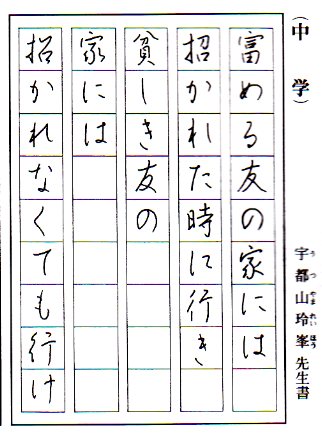 （中学）
宇都山玲峯先生書
うつやまれいほう
富める友の家には
招かれた時に行き
貧しき友の
家には
招かれなくても行け